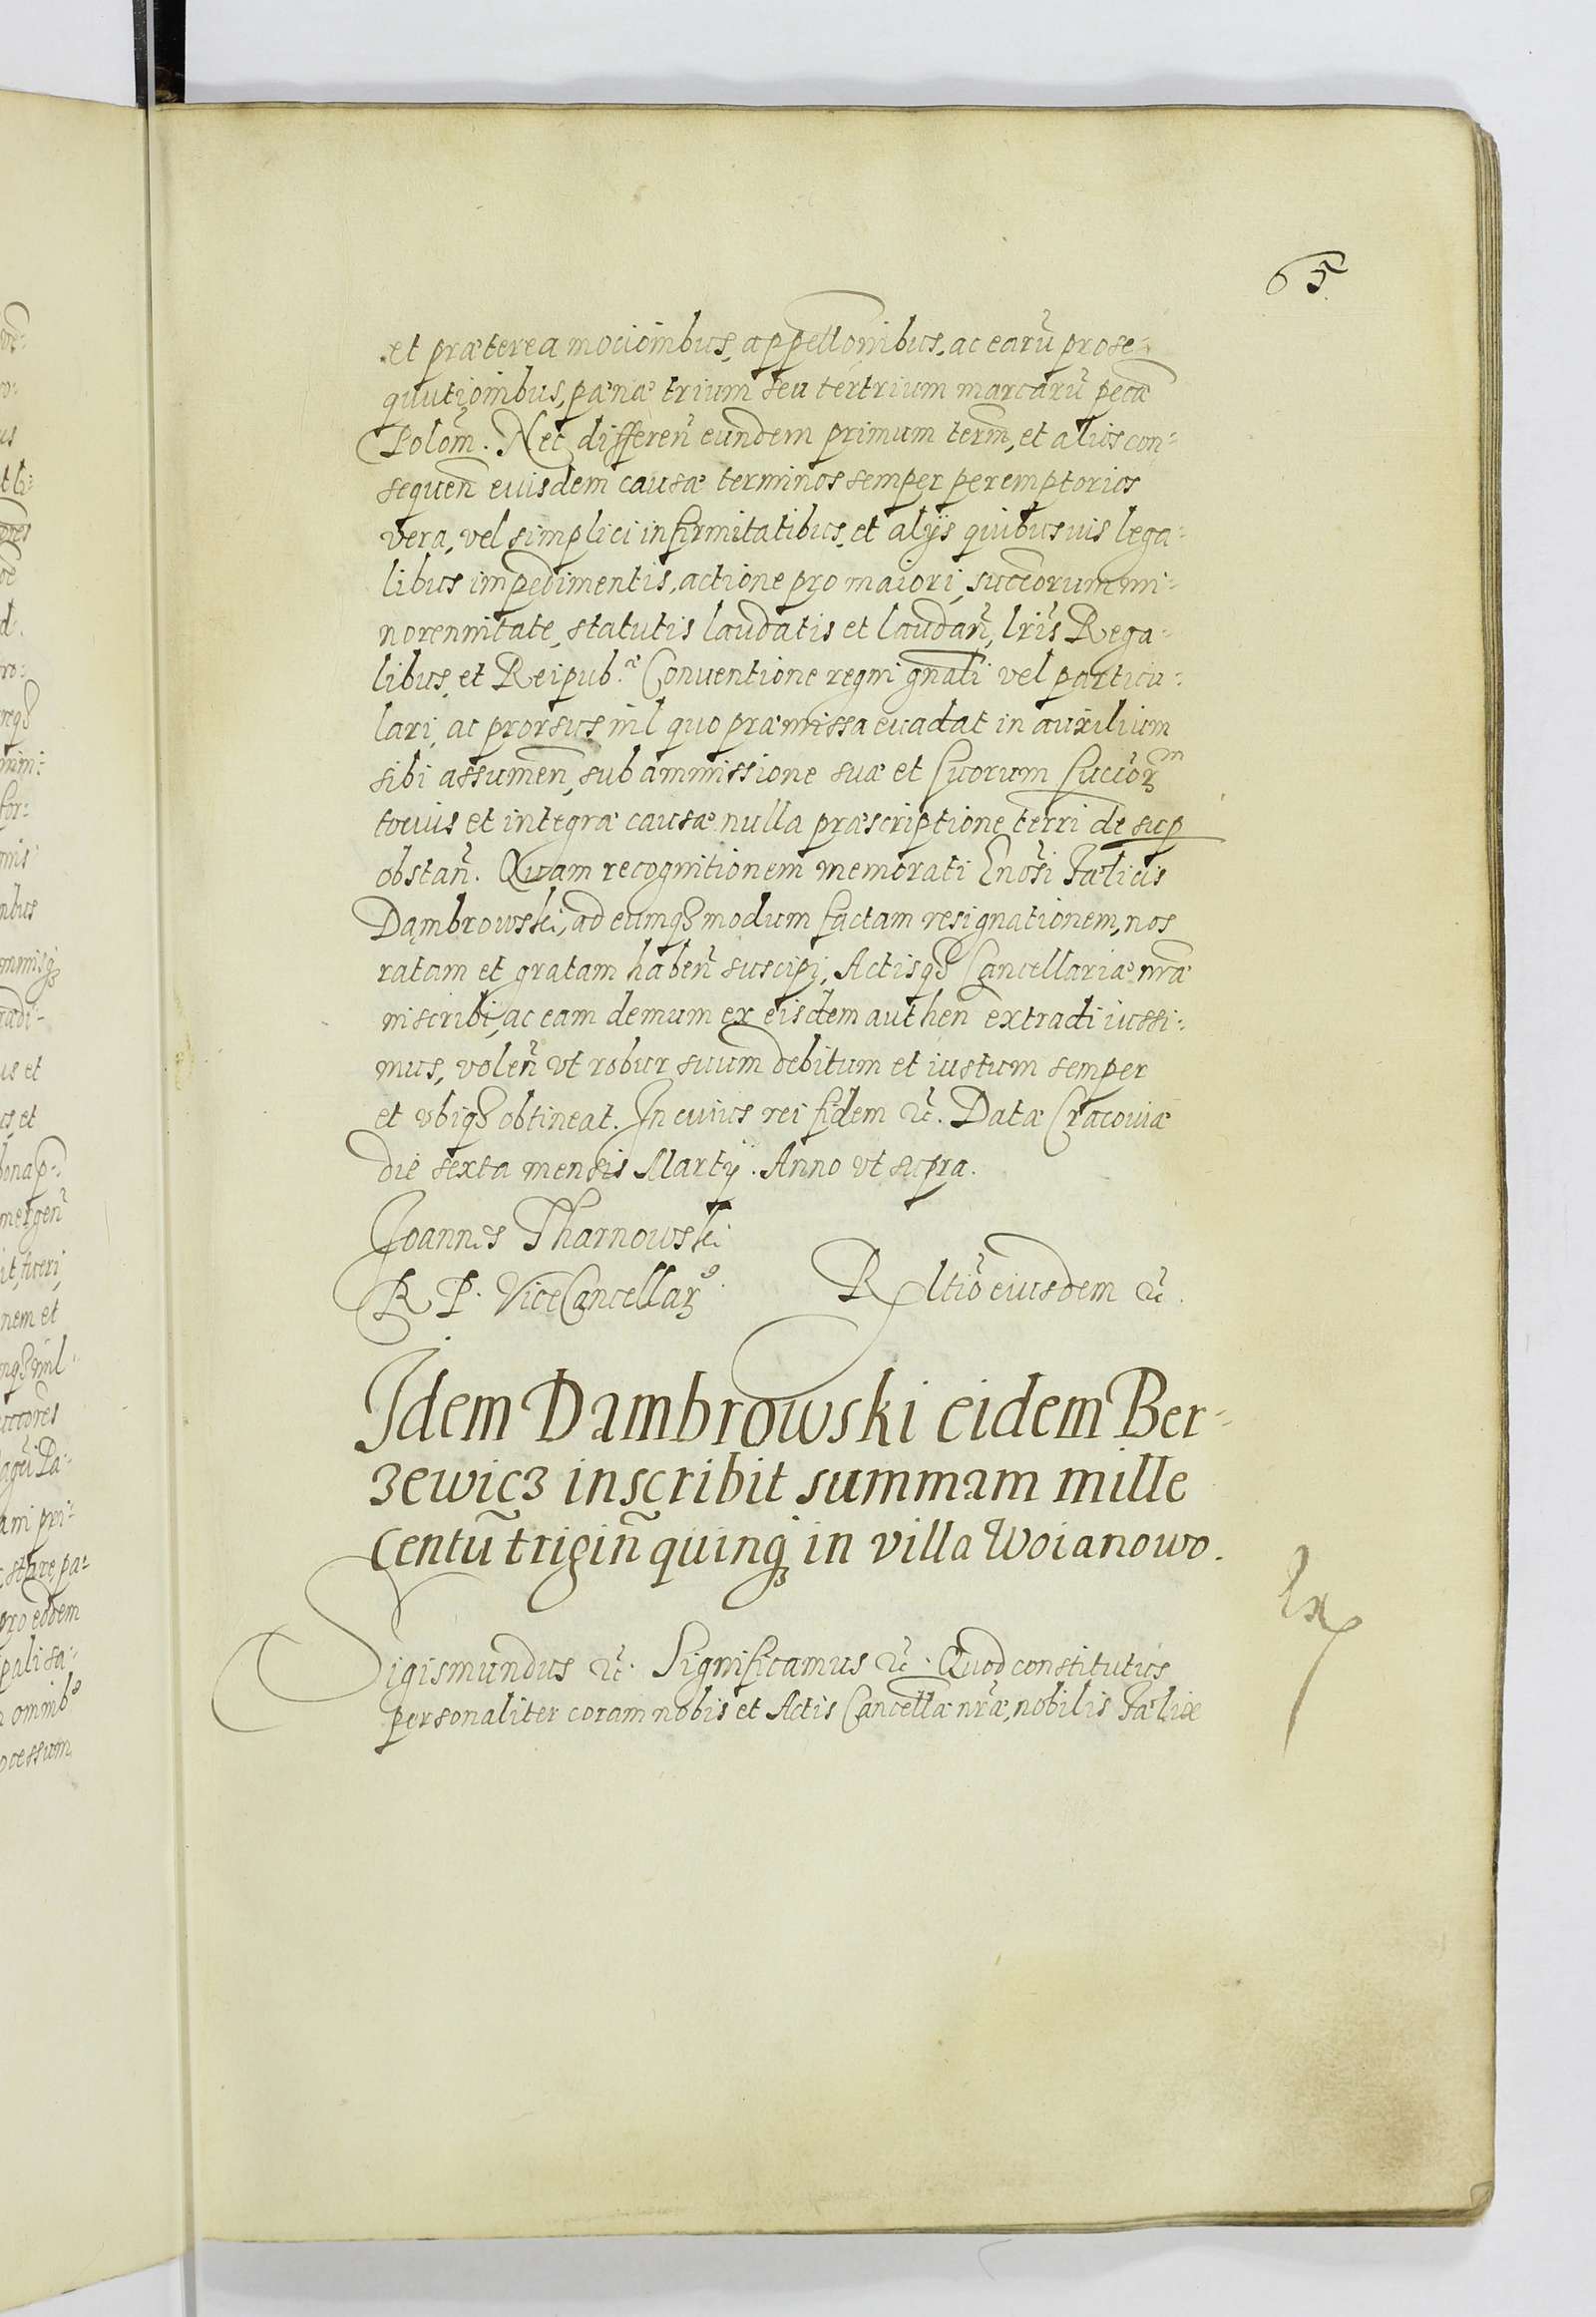 65
et præterea mocioĩnbus, appelloĩnibus, ac earũ prose-
quutioĩnbus, pænæ trium seu ter trium marcarũ pecæ
Polom̃. Nec differen̄ eundem primum term̃, et alios con-
sequen̄ euisdem causæ terminos semper peremptorios
vera, vel simplici infirmitatibus, et alijs quibusuis lega-
libus impedimentis, actione pro maiori, succorum mi-
norennitate, statutis laudatis et laudan̄, lr̃is Rega-
libus, et Reipub.æ Conuentione regni gñali vel particu-
lari, ac prorsus nil quo præmissa euadat in auxilium
sibi assumen̄, sub ammissione suæ et suorum succorm
toeius et integræ causæ, nulla præscriptione terri de sup
obstan̄. Quam recognitionem memorati Gnosi Fælicis
Dąmbrowski, ad eumqȝ modum factam resignationem, nos
ratam et gratam haben̄ suscipi, Actisqȝ Cancellariæ nr̃æ
inscribi, ac eam demum ex eisdem authen̄ extradi iussi-
mus, volen̄ vt robur suum debitum et iustum semper
et vbiqȝ obtineat. In cuius rei fidem ꝛc̃. Datæ Cracouiæ
die sexta mensis Martij. Anno vt supra.
Joannes Tharnowski
R P. ViceCancellarꝫ9. Rltiõ eiusdem ꝛc̃.
Idem Dambrowski eidem Ber-
ȝewicȝ inscribit summam mille
Centũ trigin̄ quinqȝ in villa Woianowo.
Sigismundus ꝛc̃. Significamus ꝛc̃. Quod constitutus
personaliter coram nobis et Actis Cancellæ nr̃æ, nobilis Fælix